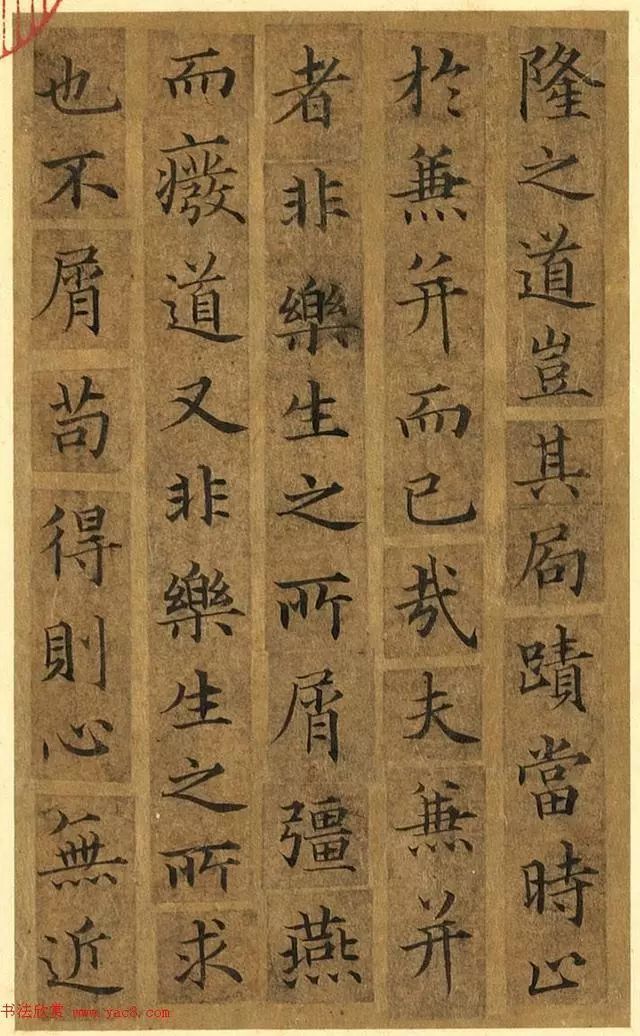 隆之道豈其局蹟當時止
於兼并而已㢤夫兼并
者非樂生之所屑彊燕
而癈道又非樂生之所求
也不屑苟得則心無近
书法欣赏 www.yac8.com